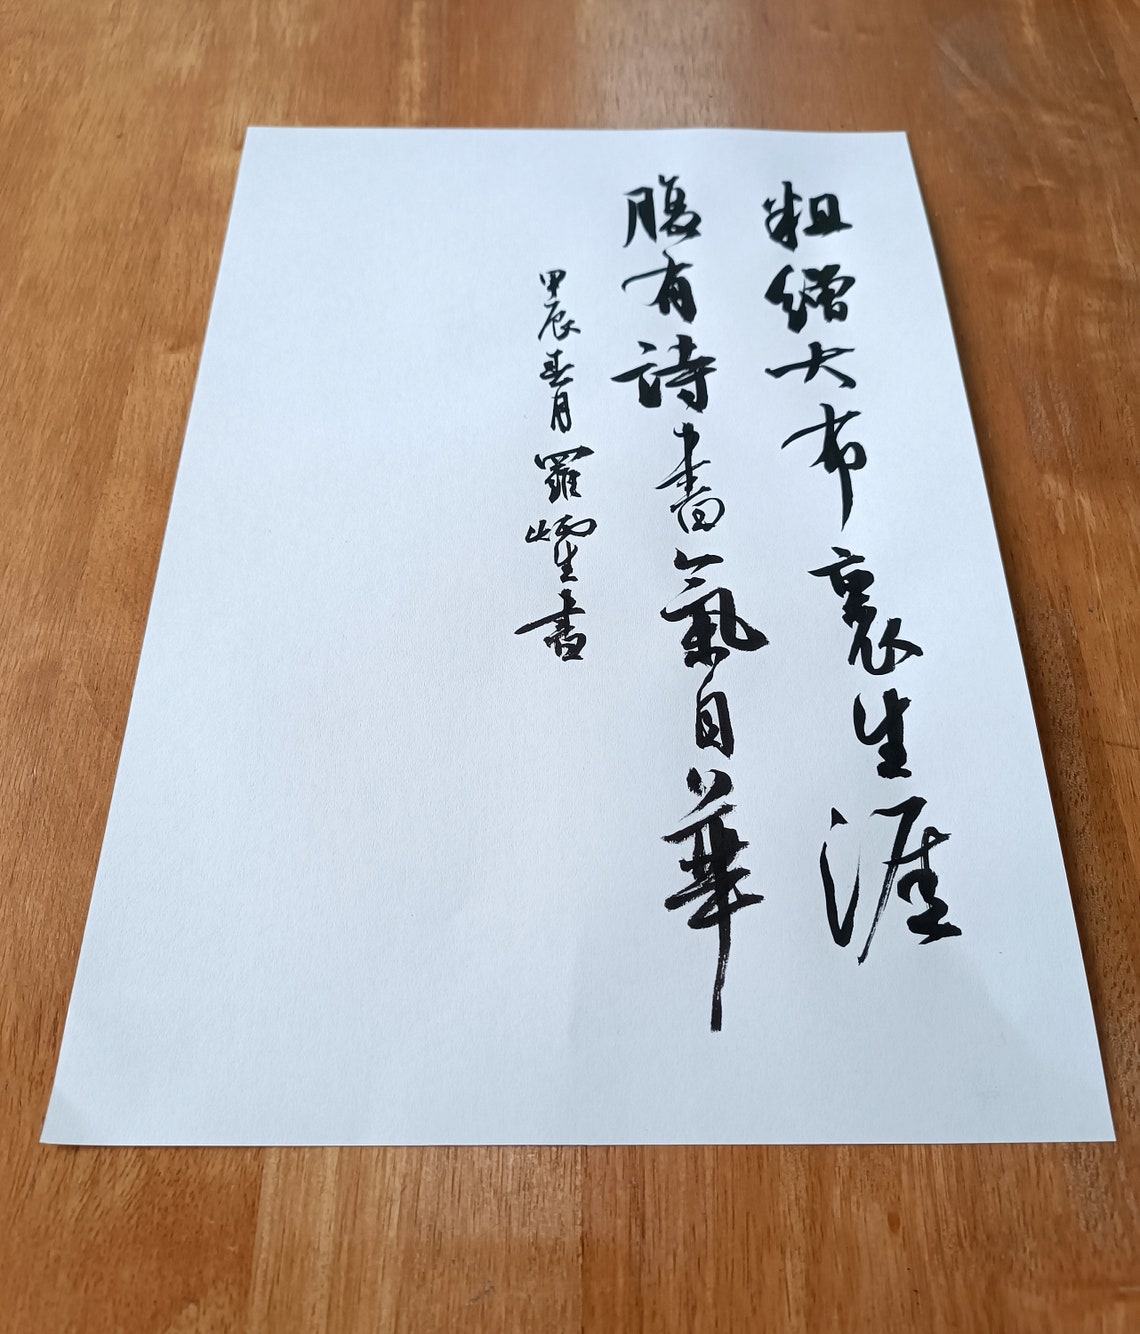 粗繒大布裏生涯
腹有詩書氣自華
甲辰春月羅書